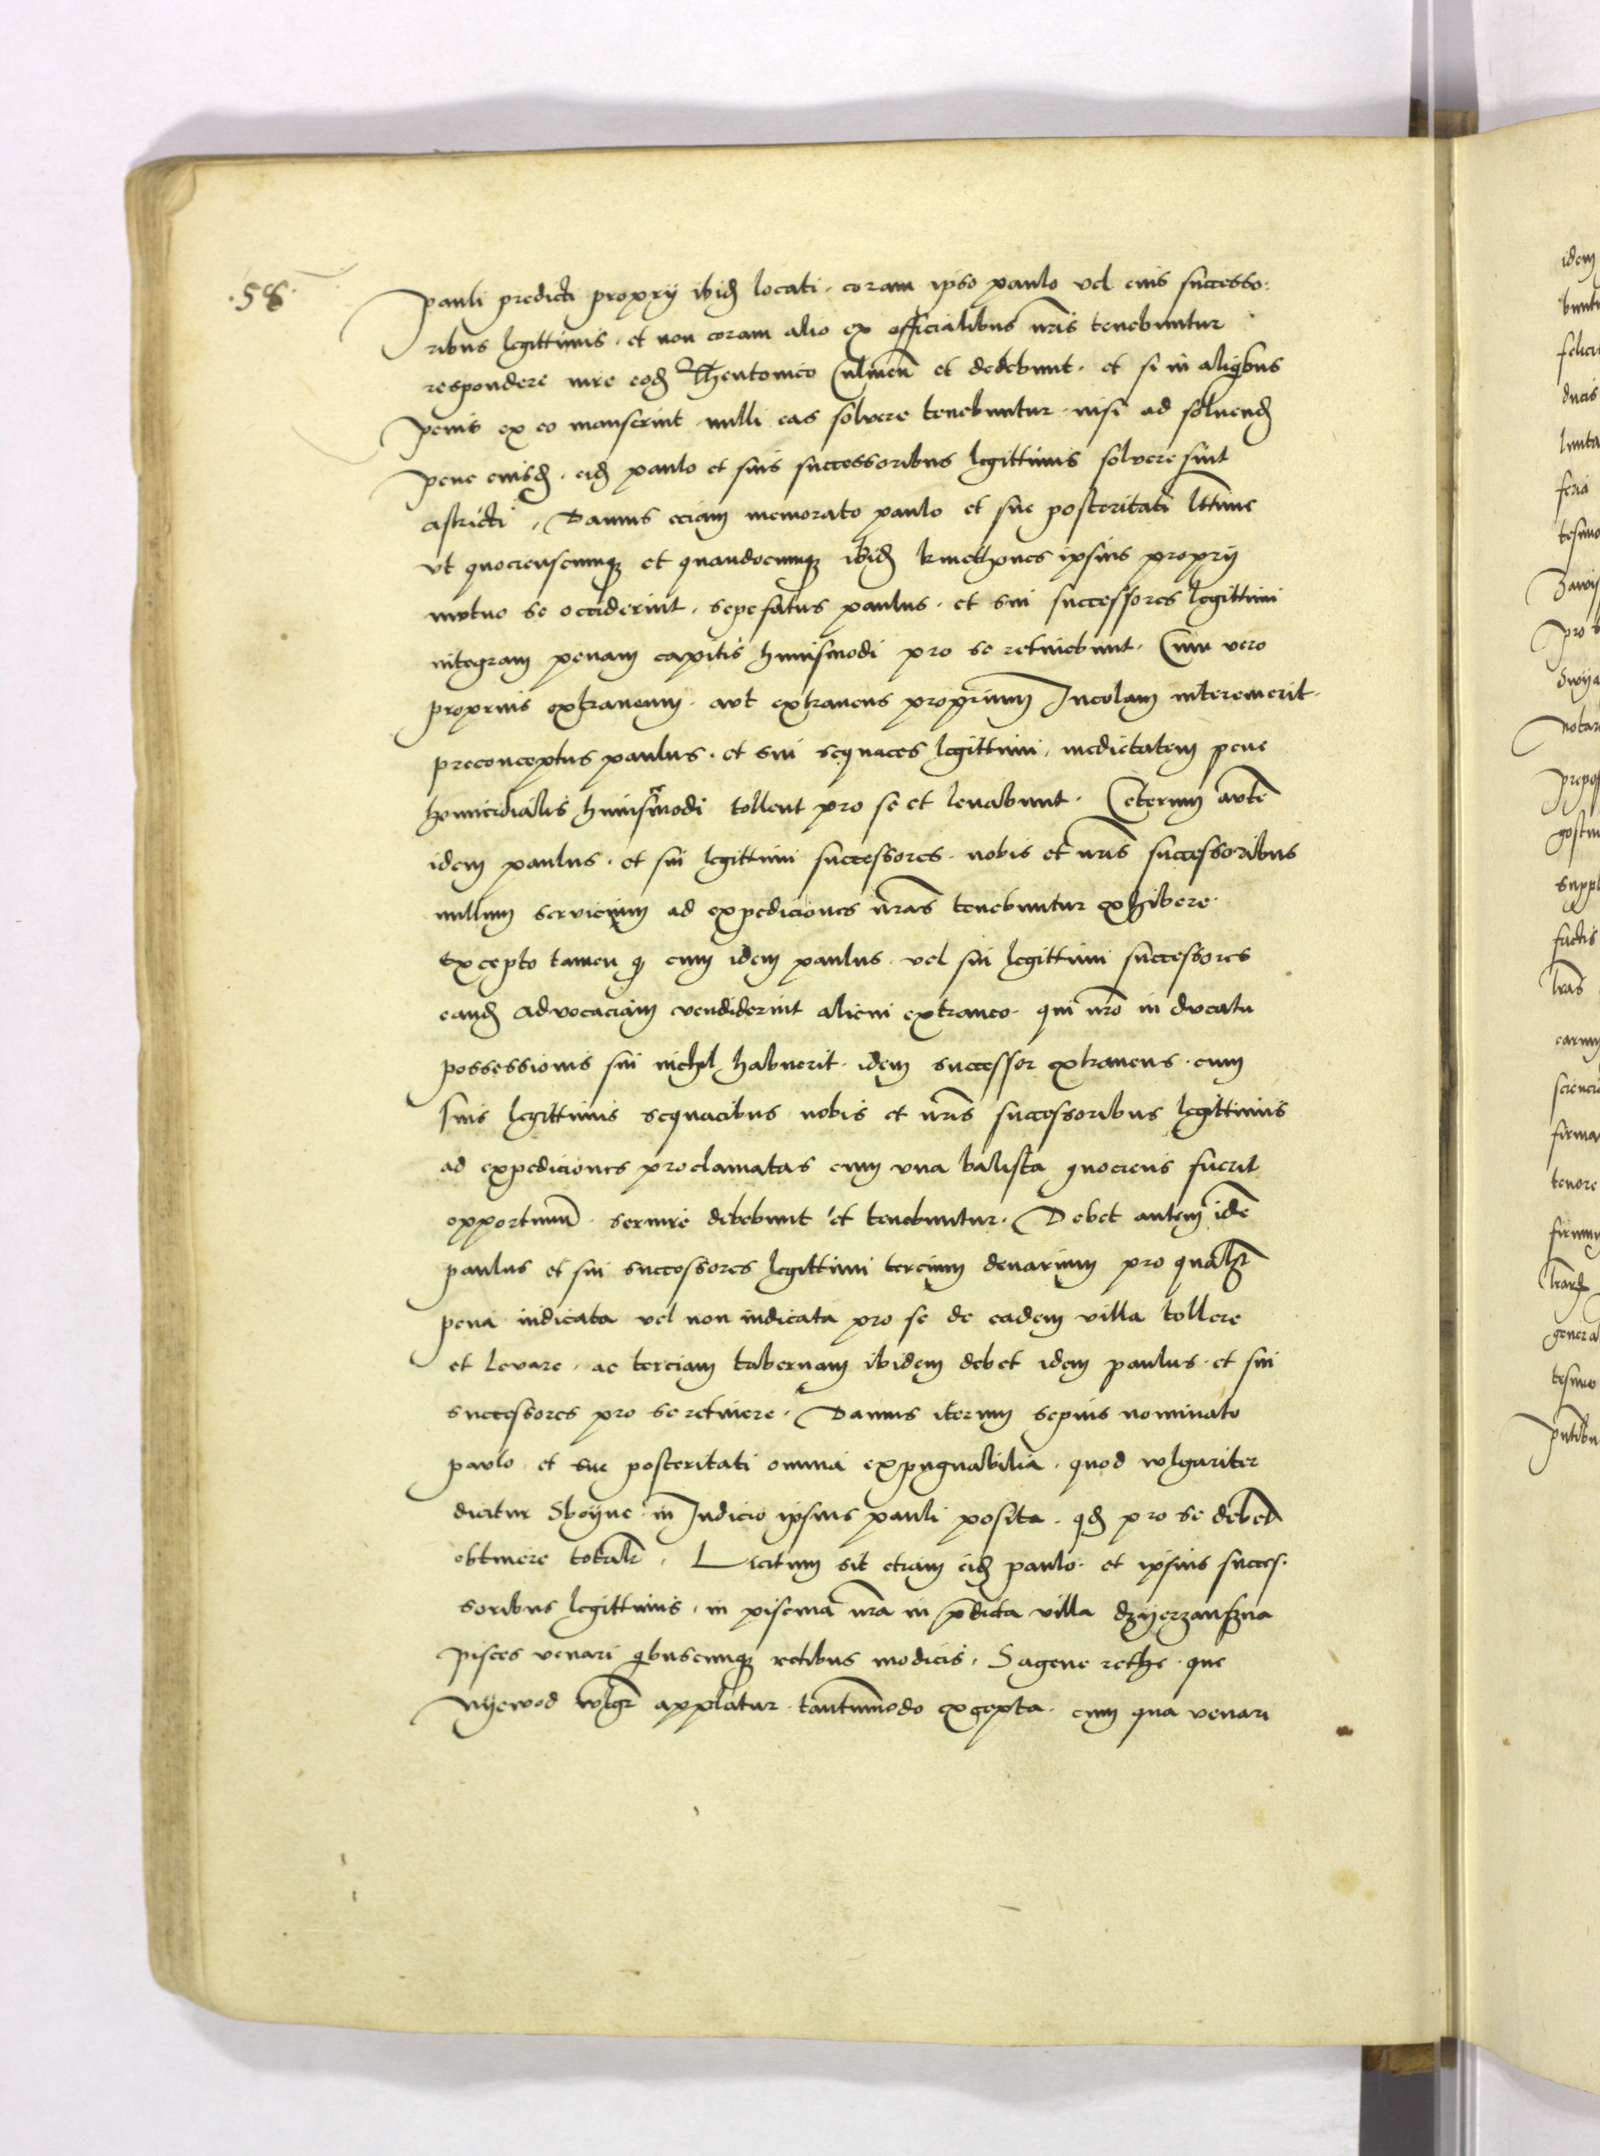 .58.
pauli predicti proprij ibid locati. coram ipso paulo vel eius successo:
ribus legittimis. et non coram alio ex officialibus nris tenebuntur
respondere iure eod Thentonico Culmen et dedebunt. et si in aliqbus
penis ex eo manserint nulli eas solvere tenebuntur nisi ad soluend
pene eiusd. eid paulo et suis successoribus legittimis solvere sint
astricti. Damus eciam memorato paulo et sue posteritati lttime
vt quocienscumq et quandocumq ibid kmethones ipsius proprij
mutuo se occiderint. sepefatus paulus. et sui successores legittimi
integram penam capitis huiusmodi pro se retinebunt. Cum vero
proprius extraneum. aut extraneus proprium Incolam interemerit.
preconceptus paulus. et sui sequaces legittimi, medietatem pene
homicidialis huiusmodi tollent pro se et leuabunt. Ceterum aute
idem paulus. et sui legittimi successores. nobis et nris successoribus
nullum servicium ad expediciones nras tenebuntur exhibere.
Excepto tamen q cum idem paulus vel sui legittimi successores
eand advocaciam vendiderint alieni extraneo. qui nro in ducatu
possessionis sui nichil habuerit. idem successor extraneus. cum
suis legittimis sequacibus nobis et nris successoribus legittimis
ad expediciones proclamatas cum vna balista quociens fuerit
opportunu. seruire debebunt et tenebuntur. Debet autem ide
paulus et sui successores legittimi tercium denarium pro qualt
pena iudicata vel non iudicata pro se de eadem villa tollere
et levare. ac terciam tabernam ibidem debet idem paulus. et sui
successores pro se retinere. Damus iterum sepius nominato
paulo et sue posteritati omnia expugnabilia. quod wlgariter
dicitur Sboyne in Iudicio ipsius pauli posita. qd pro se debet
obtinere totalr. Licitum sit etiam eid paulo. et ipsius succes.
soribus legittimis. in piscina nra in pdicta villa dzyerzanszna
pisces venari qbuscumq retibus modicis. Sagene rethe. que
Nyewod wlgr applatur. tantummodo excepta. cum qua venari